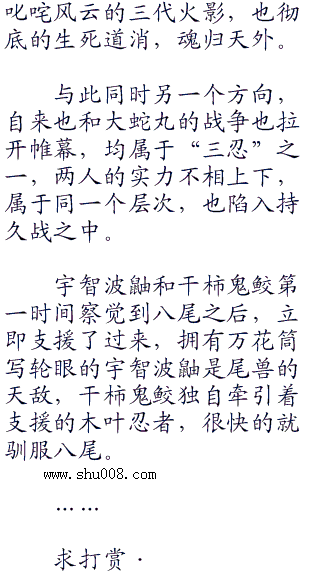 叱咤风云的三代火影，也彻
底的生死道消，魂归天外。
与此同时另一个方向，
自来也和大蛇丸的战争也拉
开帷幕，均属于“三忍”之
一，两人的实力不相上下，
属于同一个层次，也陷入持
久战之中。
宇智波鼬和干柿鬼鲛第
一时间察觉到八尾之后，立
即支援了过来，拥有万花筒
写轮眼的宇智波鼬是尾兽的
天敌，干柿鬼鲛独自牵引着
支援的木叶忍者，很快的就
驯服八尾。
www.shu008.com
……
求打赏·